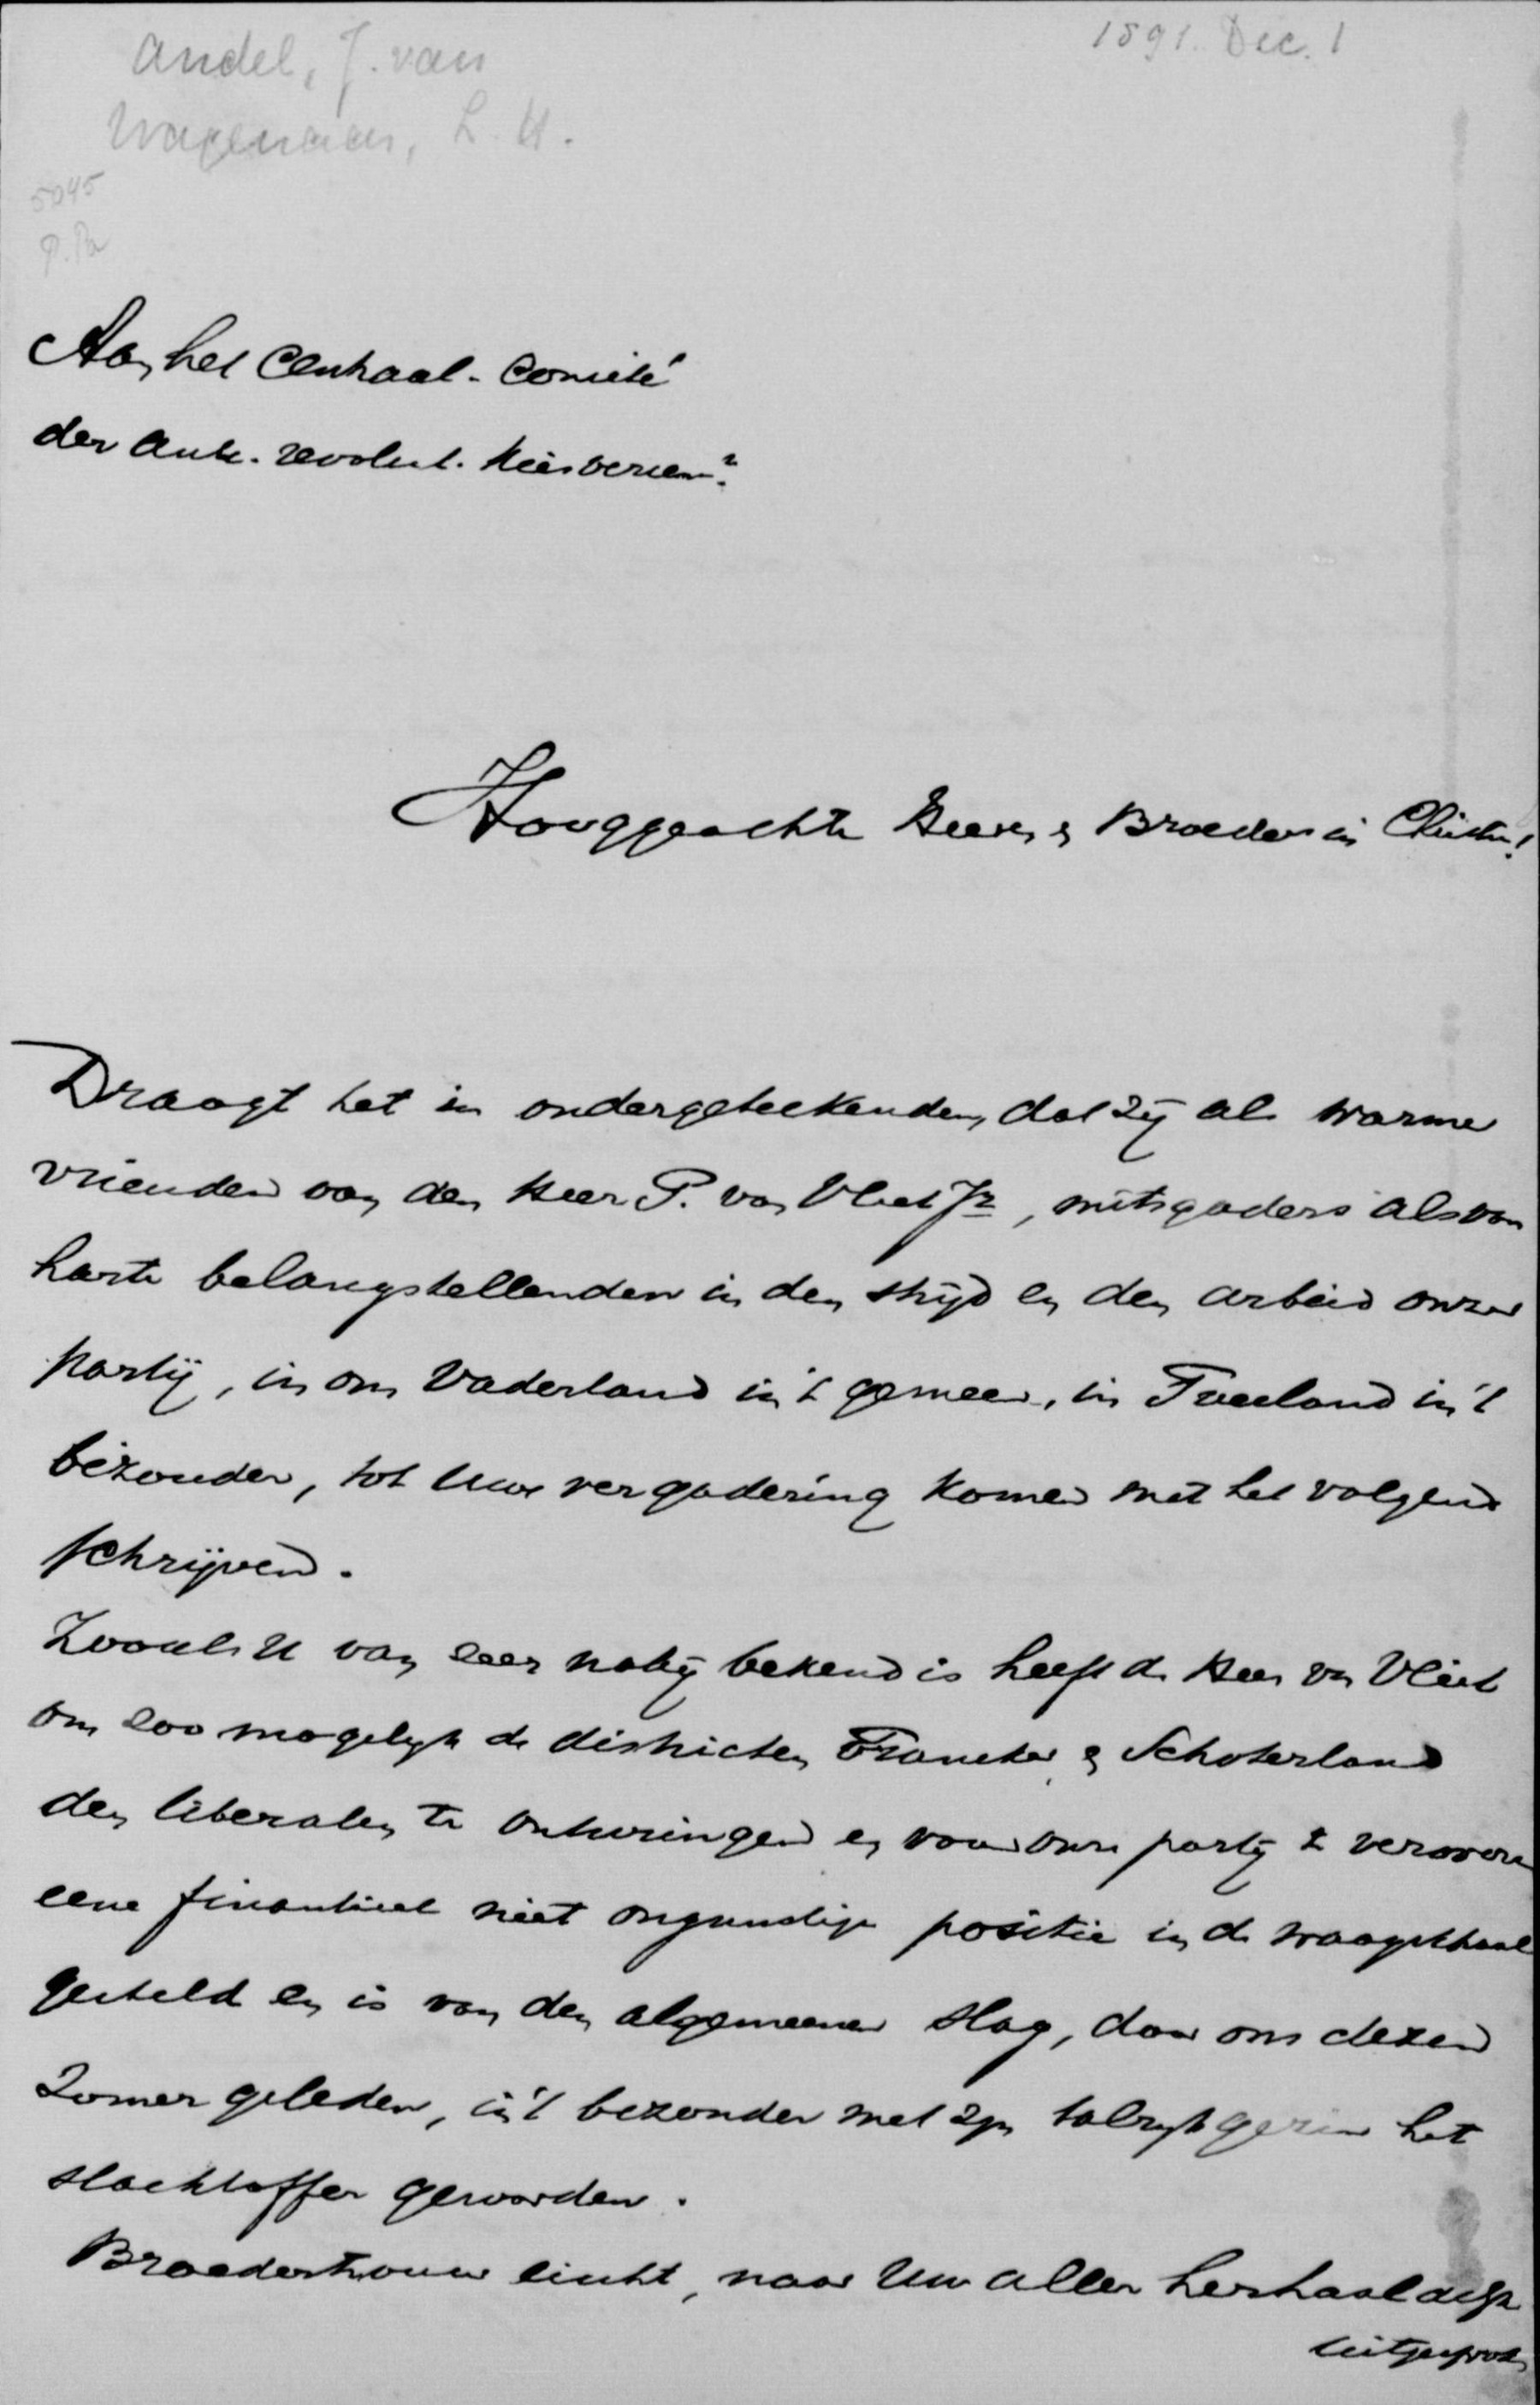 Andel, J. van
1891. Dec. 1
Wagenaar, L. H.
5045
Aan het Centraal-Comité
der Anti-revolut. Kiesvereen.n
Hooggeachte Heeren & Broeders in Christus!
Draagt het in ondergeteekenden, dat zij als warme
vrienden van den Heer P. van Vliet Jr, mitsgaders als van
harte belangstellenden in den strijd en den arbeid onzer
partij, in ons Vaderland in 't gemeen, in Friesland in 't
bizonder, tot Uwe vergadering komen met het volgend
schrijven.
Zooals U van zeer nabij bekend is heeft de Heer van Vliet
om zoo mogelijk de districten Franeker & Schoterland
den liberalen te ontwringen en voor onze partij te veroveren
eene finantieel niet ongunstige positie in de waagschaal
gesteld en is van den algemeenen slag, door ons dezen
Zomer geleden, in 't bezonder met zijn talrijk gezin het
slachtoffer geworden.
Broedertrouw eischt, naar Uw aller herhaaldelijk
uitgesproken